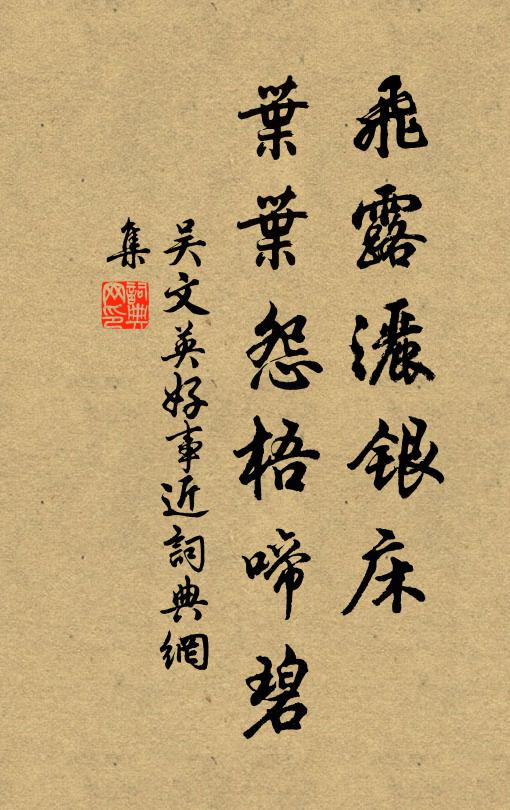 飛露灑銀床
葉葉怨梧啼碧
吴文英好事近詞典網
集
詞典
网印